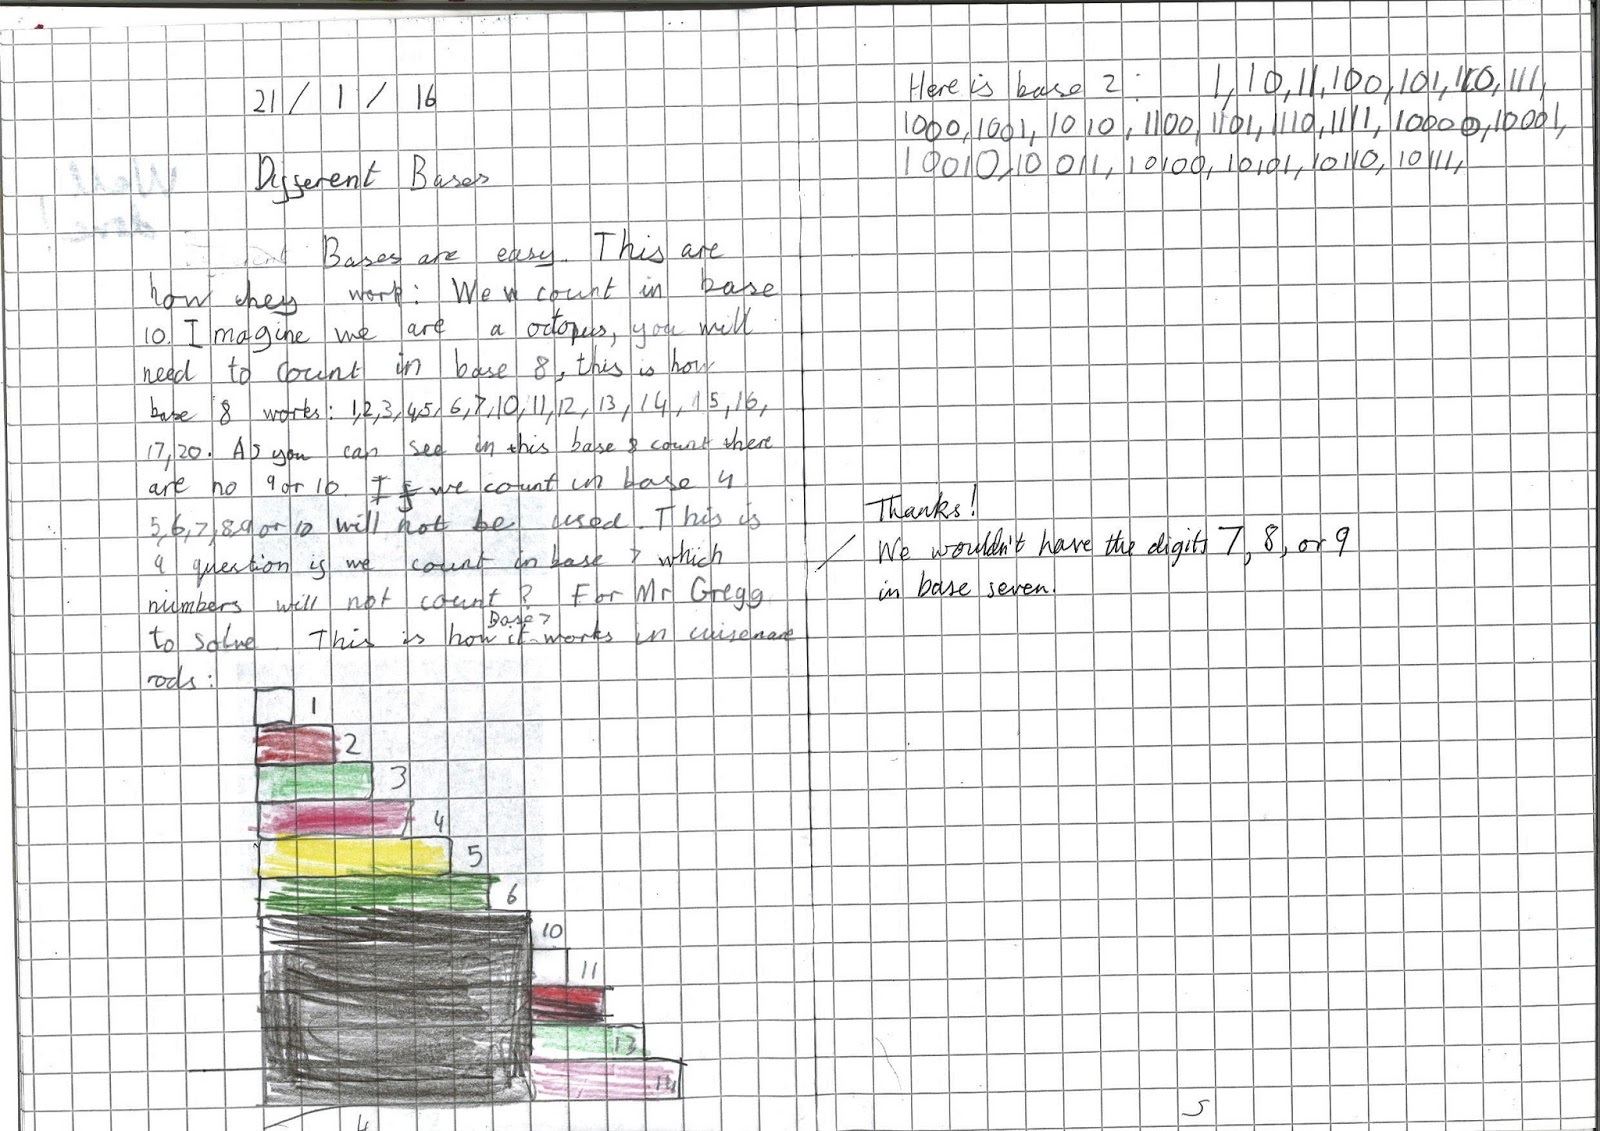 21 / 1 / 16
Different Bases
Bases are easy. This are
how they work: We count in base
10. Imagine we are a octopus, you will
need to count in base 8, this is how
base 8 works: 1,2,3,4,5, 6,7,10,11,12, 13, 14, 15,16,
17,20. As you can see in this base 8 count there
are no 9 or 10. If we count in base 4
5,6,7,8,9 or 10 will not be used. This is
a question is we count in base 7 which
numbers will not count? For Mr Gregg
Base 7
to solve. This is how it works in cuisenare
rods:
1
2
3
4
5
6
10
11
13
14
4
Here is base 2: 1, 10, 11, 100, 101, 110, 111,
1000, 1001, 1010, 1100, 1101, 1110, 1111, 10000, 10001,
10010, 10011, 10100, 10101, 10110, 10111,
Thanks!
We wouldn't have the digits 7, 8, or 9
in base seven.
5